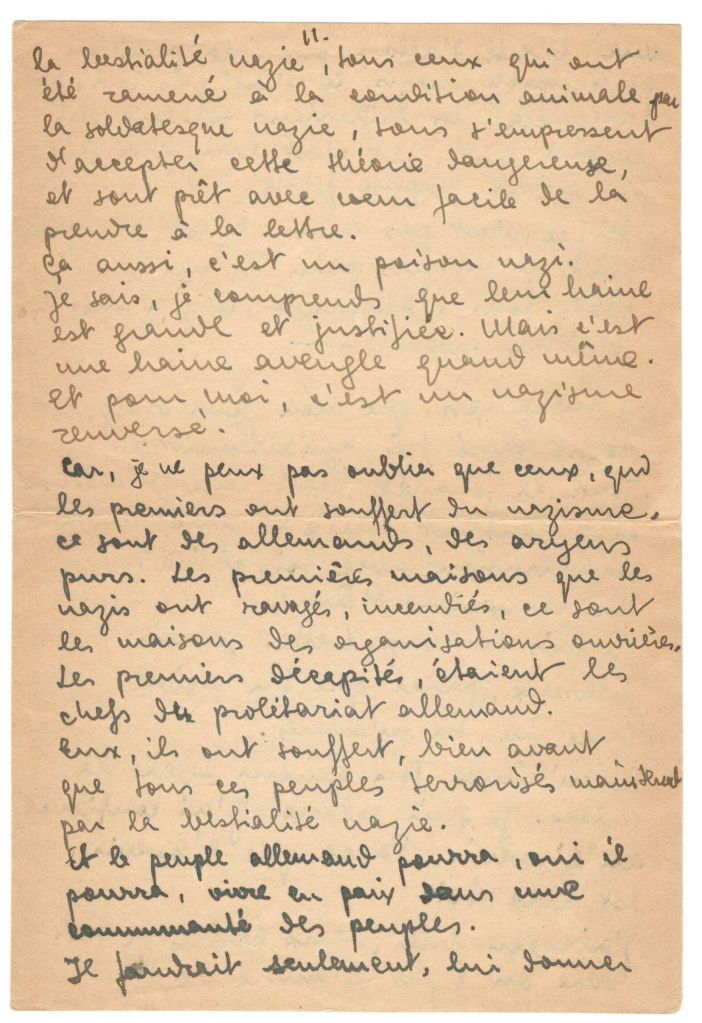 11.
la bestialité nazie, tous ceux qui ont
été ramené à la condition animale par
la soldatesque nazie, tous s'empressent
d'accepter cette théorie dangereuse,
et sont prêt avec cœur facile de la
prendre à la lettre.
Ça aussi, c'est un poison nazi.
Je sais, je comprends que leur haine
est grande et justifiée. Mais c'est
une haine aveugle quand même.
Et pour moi, c'est un nazisme
renversé.
Car, je ne peux pas oublier que ceux, qui
les premiers ont souffert du nazisme,
ce sont des allemands, des aryens
purs. Les premières maisons que les
nazis ont ravagés, incendiés, ce sont
les maisons des organisations ouvrières.
Les premiers décapités, étaient les
chefs du prolétariat allemand.
Eux, ils ont souffert, bien avant
que tous ces peuples terrorisés maintenant
par la bestialité nazie.
Et le peuple allemand pourra, oui il
pourra, vivre en paix dans une
communauté des peuples.
Il faudrait seulement, lui donner